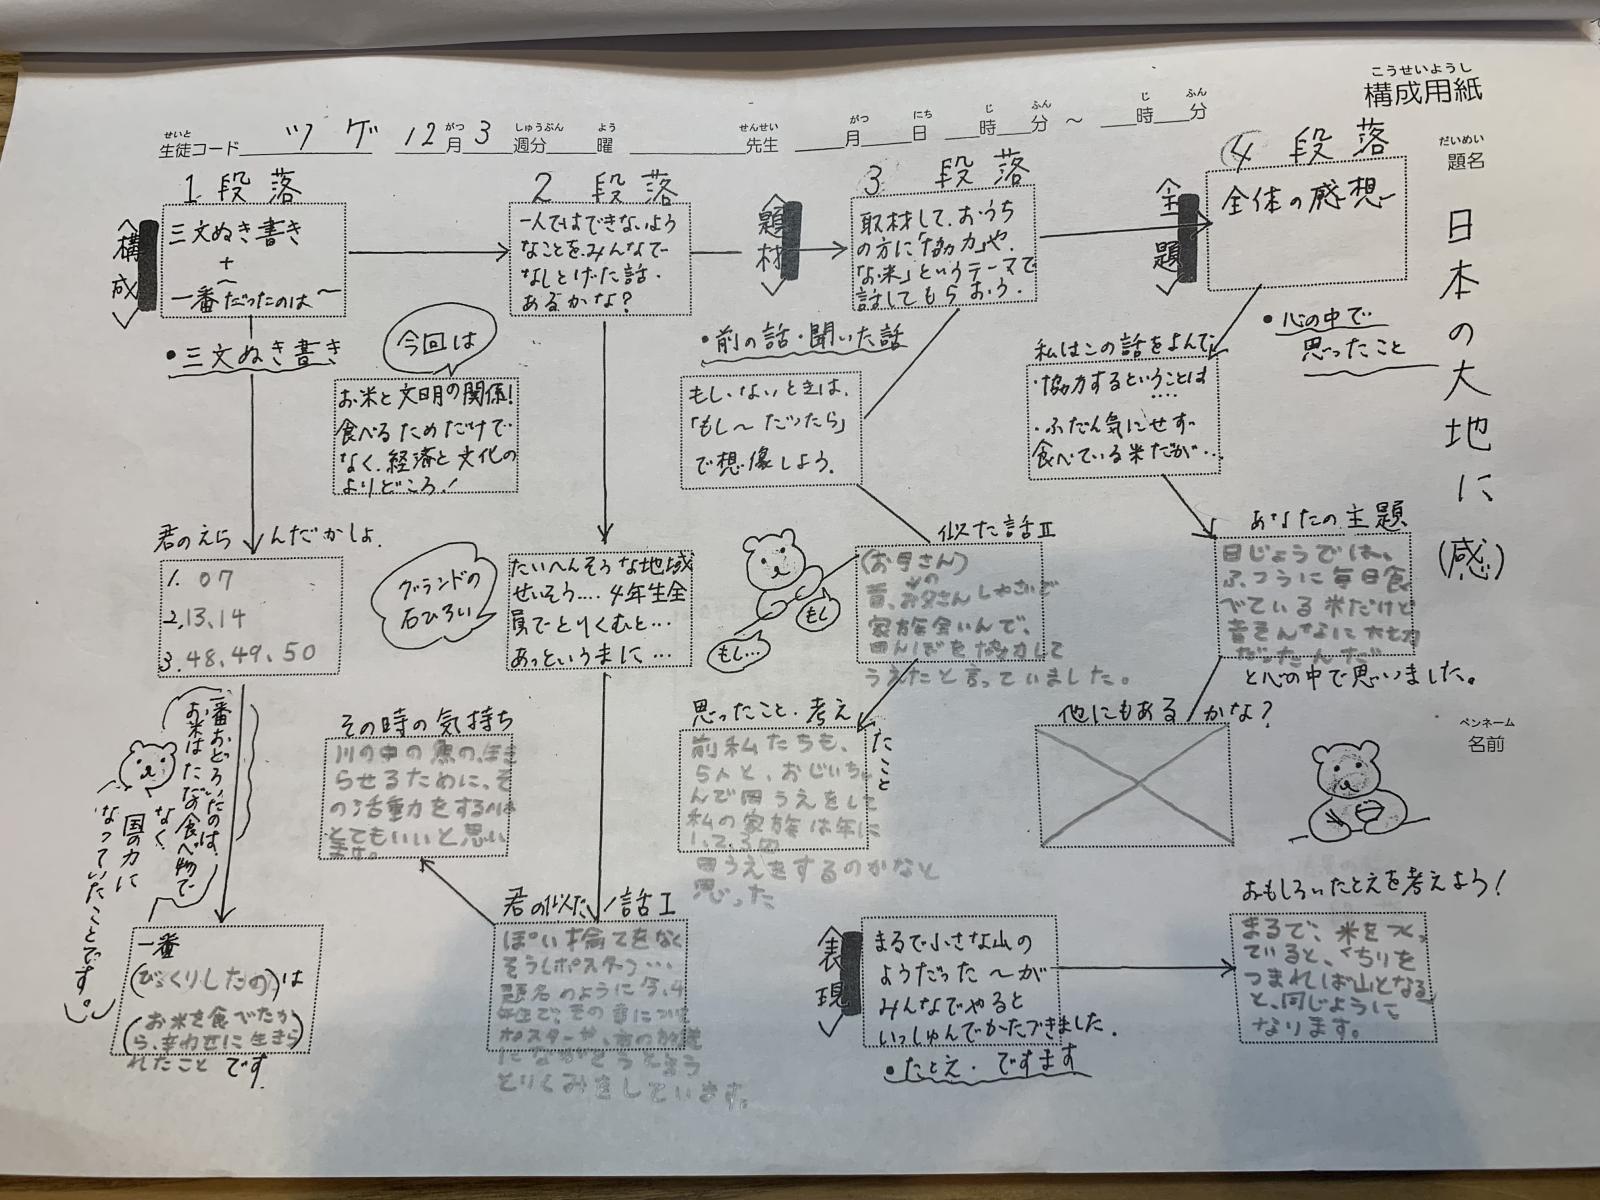 こうせいようし
構成用紙
せいと
生徒コード ツゲ 12月3週分 曜 先生 月 日 時 分 ～ 時 分
がつ しゅうぶん よう せんせい がつ にち じ ふん じ ふん
だいめい
題名
日本の大地に(感)
ペンネーム
名前
1段落
<構成>
三文ぬき書き
+
一番だったのは～
・三文ぬき書き
君のえらんだかしょ
1. 07
2. 13, 14
3. 48, 49, 50
一番おどろいたのは、
お米はただの食べ物で
なく
国の力に
なっていたことです。
一番
(びっくりしたの)は
(お米を食べたか
ら、幸わせに生きら
れたこと)です。
2段落
一人ではできないよう
なことを、みんなで
なしとげた話、
あるかな?
今回は
お米と文明の関係!
食べるためだけで
なく、経済と文化の
よりどころ!
グランドの
石ひろい
たいへんそうな地域
せいそう…。4年生全
員でとりくむと…
あっというまに…
その時の気持ち
川の中の魚の、
らせるために、そ
の活動力をするのは
とてもいいと思い
ます。
君の似た話I
ぽい捨てをなく
そうしポスター…
題名のように今、4
年生で、その章について
ポスターや、市の放送
にながそうとゆう
とりくみをしています。
<題材>
3段落
取材して、おうち
の方に「協力」や、
「お米」というテーマで
話してもらおう。
・前の話・聞いた話
もし、ないときは、
「もし～だったら」
で想像しよう。
もし
もし…
似た話II
(お母さん)
昔、お父さんの
家族全いんで、
田んぼを協力して
うえたと言っていました。
思ったこと・考えたこと
前私たちも、
5人と、おじいちゃ
んで田うえをして
私の家族は年に
1、2、3回
田うえをするのかなと
思った
<主題>
4段落
全体の感想
・心の中で
思ったこと
私はこの話をよんで、
・協力するということは
….
・ふだん気にせず
食べている米だが…
あなたの主題
日じょうでは、
ふつうに毎日食
べている米だけど
昔そんなに大切
だったんだ
と心の中で思いました。
他にもあるかな?
<表現>
まるで小さな山の
ようだった～が
みんなでやると
いっしゅんでかたづきました.
・たとえ・ですます
おもしろいたとえを考えよう!
まるで、米をつく
っていると、くちりを
つまれば山となる
と、同じように
なります。